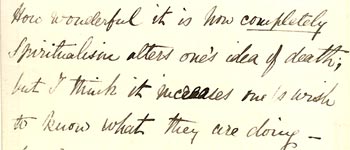 How wonderful it is how completely
Spiritualism alters one's idea of death;
but I think it increases one's wish
to know what they are doing —